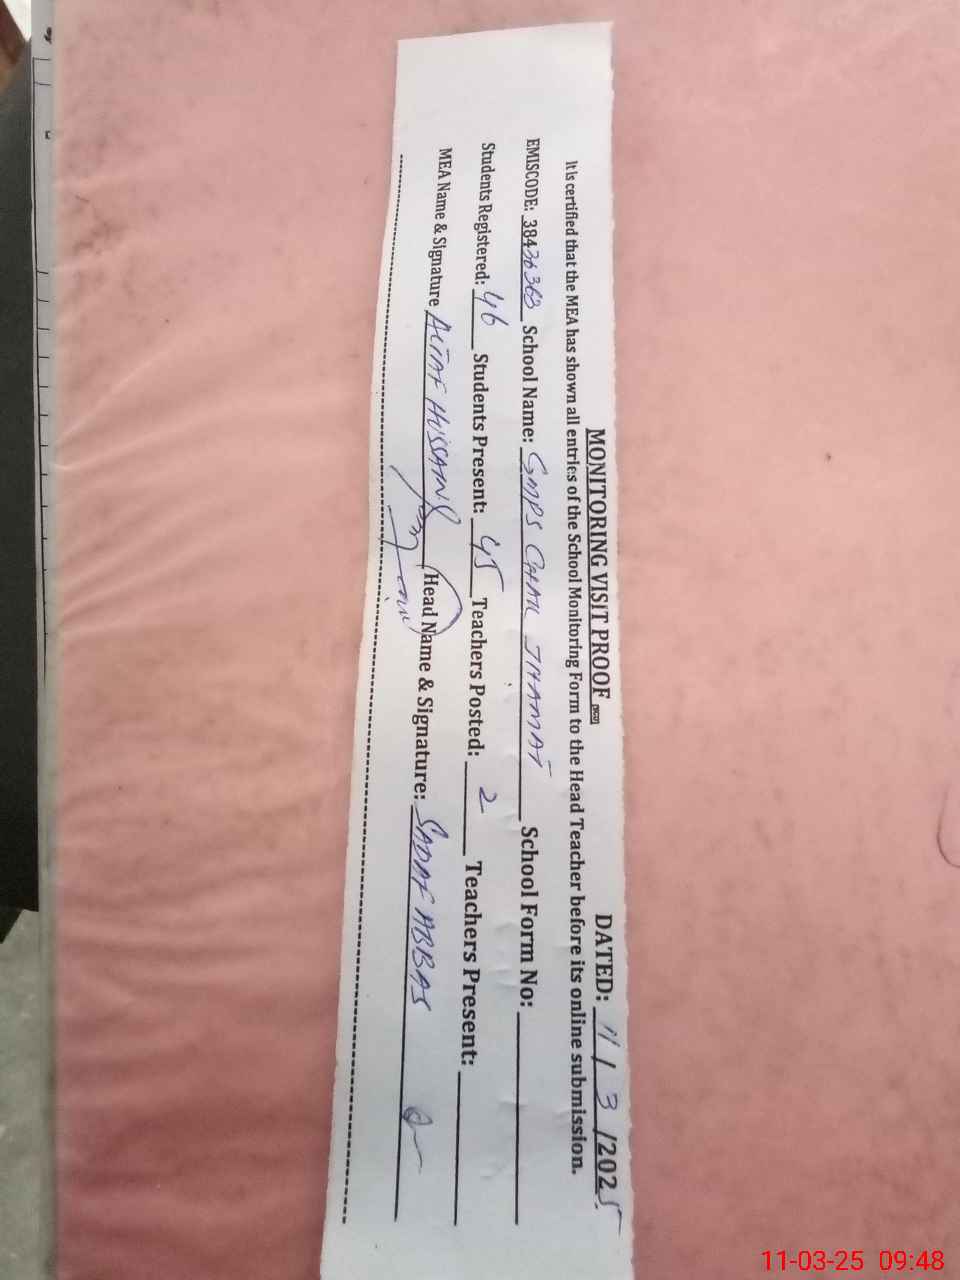 MONITORING VISIT PROOF DATED: 11/3/2025
It is certified that the MEA has shown all entries of the School Monitoring Form to the Head Teacher before its online submission.
EMISCODE: 38436368 School Name: GMPS CHAK JHAMAT School Form No:
Students Registered: 46 Students Present: 45 Teachers Posted: 2 Teachers Present:
MEA Name & Signature ALTAF HUSSAIN Head Name & Signature: SADAF ABBAS
11-03-25 09:48